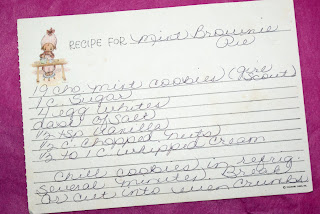 RECIPE FOR Mint Brownie
Pie
19 cho mint cookies (Girl
Scout)
1 c. sugar
4 egg whites
dash of salt
1/2 tsp vanilla
1/2 c chopped nuts
1/2 to 1 c whipped cream
Chill cookies in refrig.
several minutes. Break
or cut into even crumbs